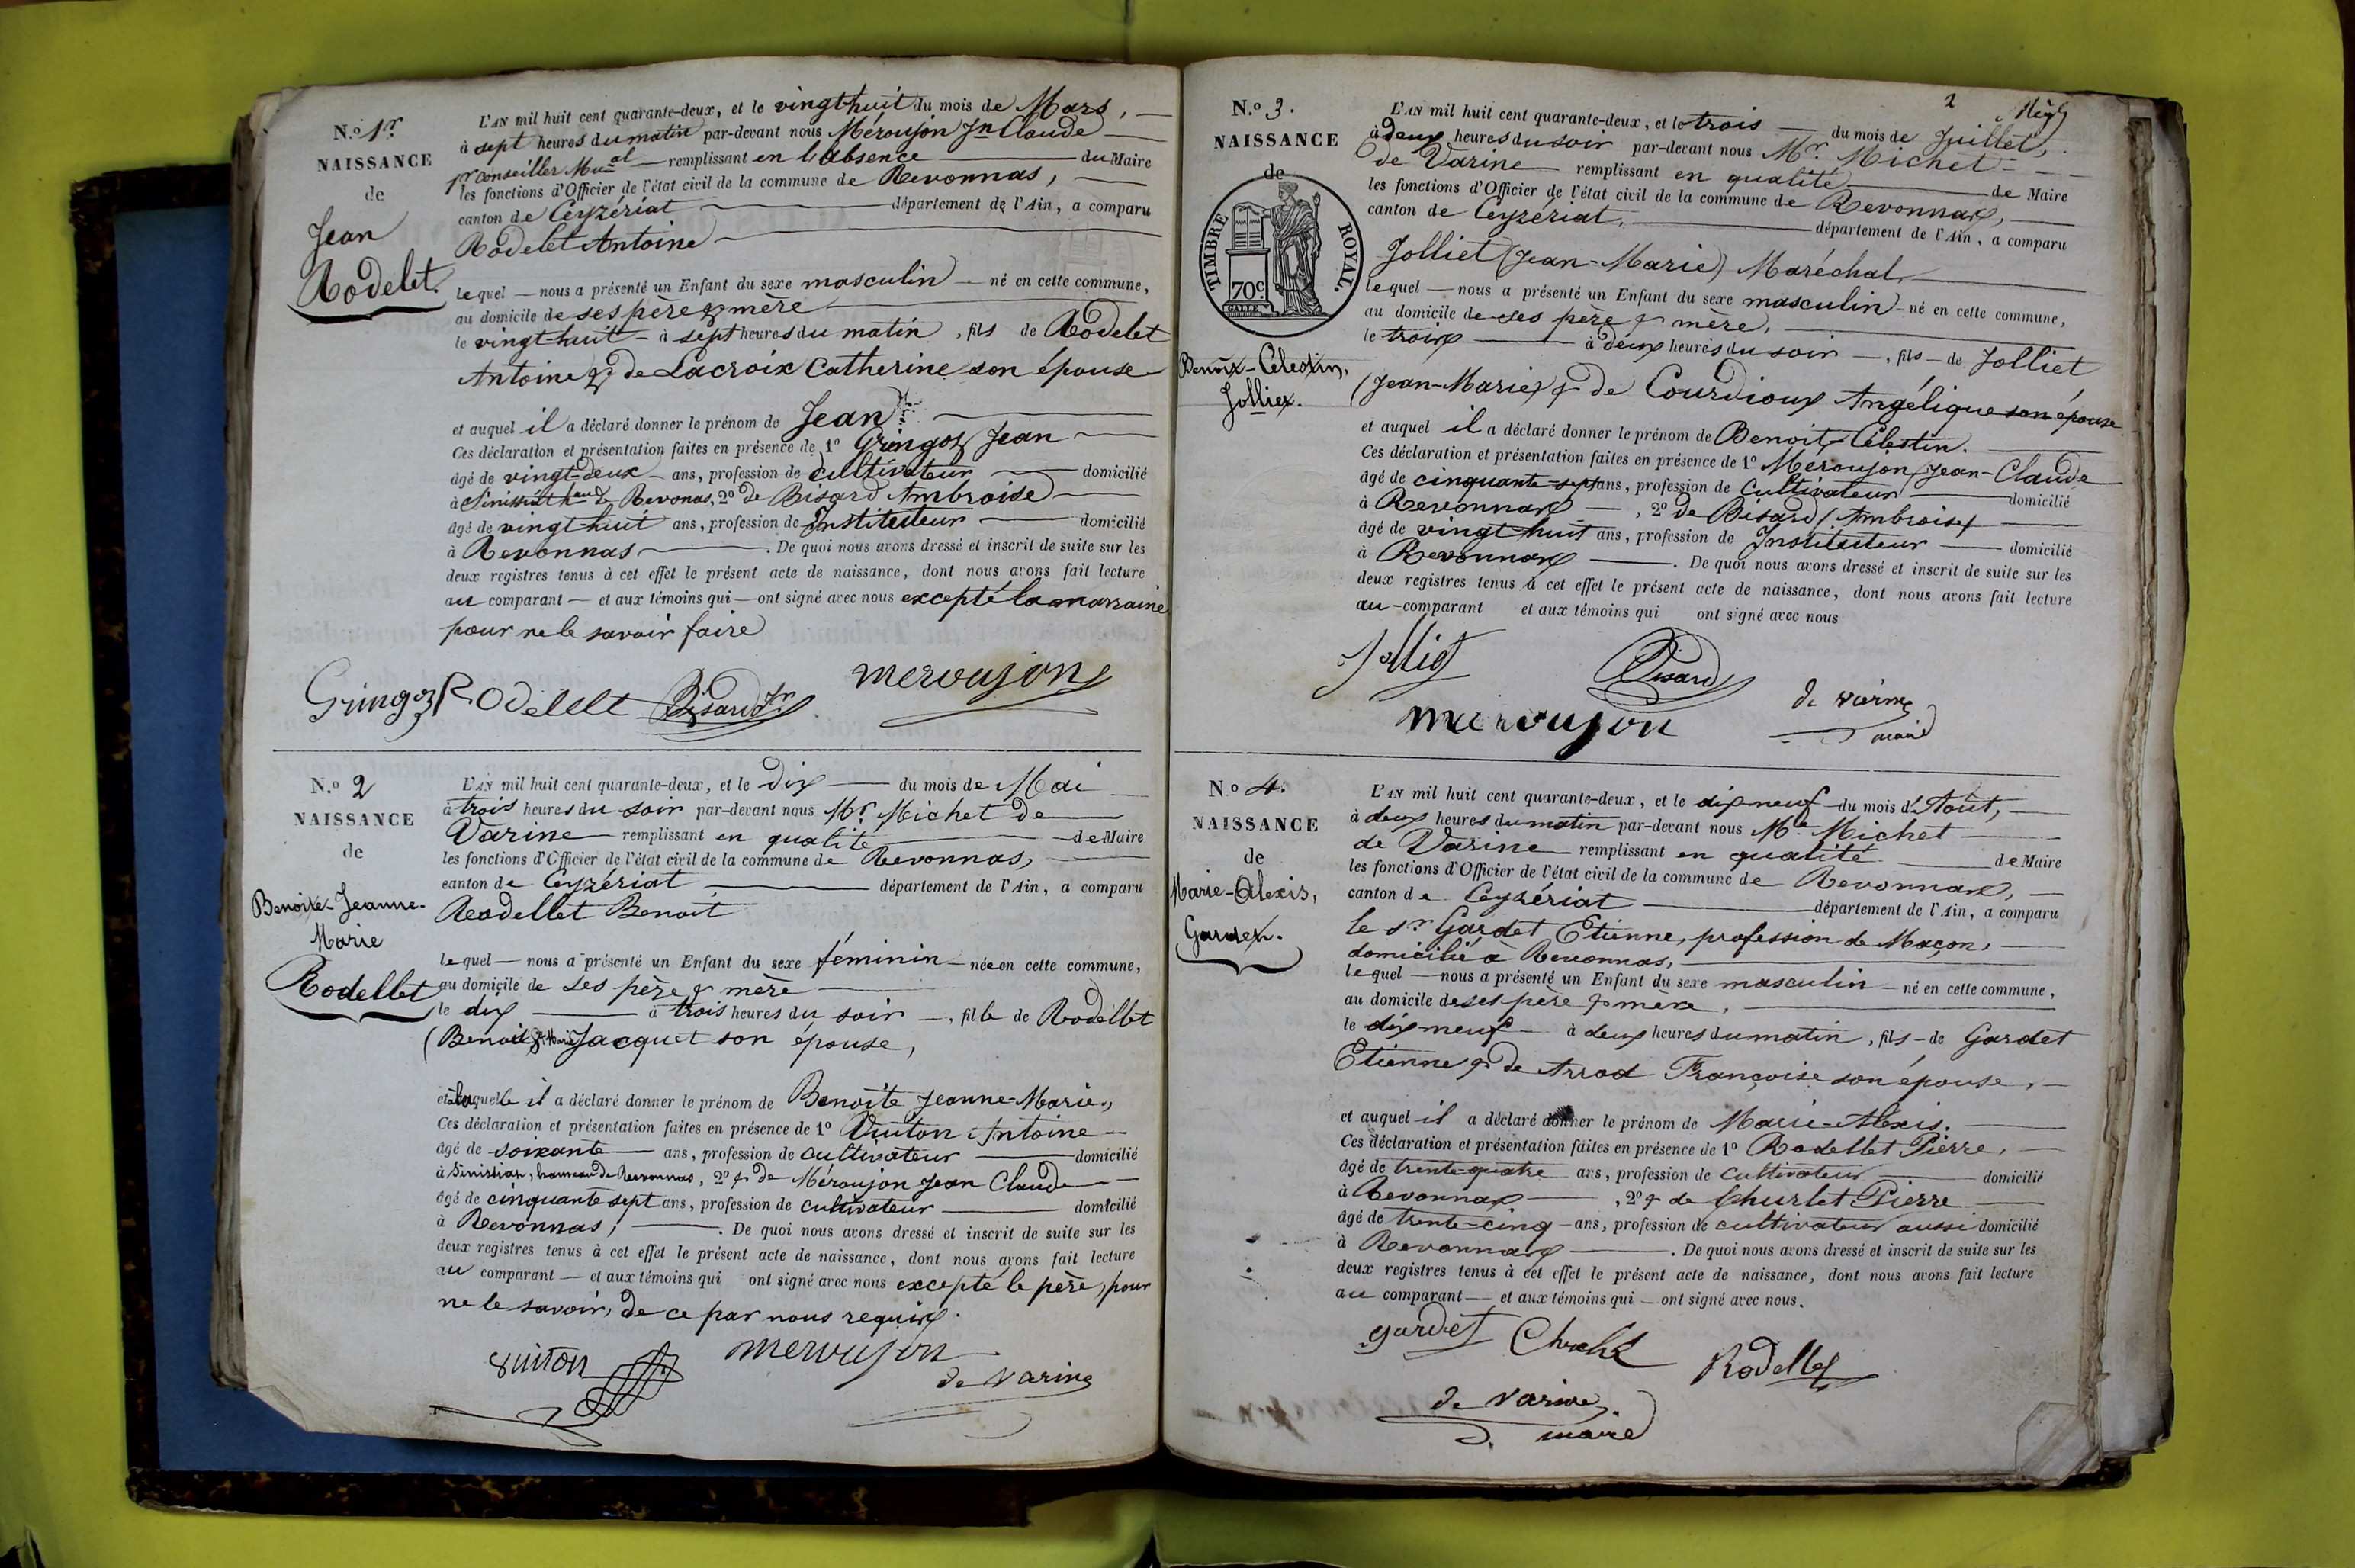 N.º 1.r
NAISSANCE
de
Jean
Rodelet.
L'AN mil huit cent quarante-deux, et le vingt huit du mois de Mars,
à sept heures du matin par-devant nous Méroujon Jn Claude
1.r Conseiller Mu.al remplissant en l'absence du Maire
les fonctions d'Officier de l'état civil de la commune de Revonnas,
canton de Ceyzériat département de l'Ain, a comparu
Rodelet Antoine
lequel nous a présenté un Enfant du sexe masculin né en cette commune,
au domicile de ses père & mère
le vingt-huit à sept heures du matin, fils de Rodelet
Antoine & de Lacroix Catherine son épouse
et auquel il a déclaré donner le prénom de Jean
Ces déclaration et présentation faites en présence de 1º Gringoz Jean
âgé de vingt-deux ans, profession de cultivateur domicilié
à hau de Revonas, 2º de Bisard Ambroise
âgé de vingt huit ans, profession de Instituteur domicilié
à Revonnas. De quoi nous avons dressé et inscrit de suite sur les
deux registres tenus à cet effet le présent acte de naissance, dont nous avons fait lecture
au comparant et aux témoins qui ont signé avec nous excepté la marraine
pour ne le savoir faire
Gringoz Rodelet Bisard mervujon
N.º 2
NAISSANCE
de
Benoite-Jeanne-
Marie
Rodellet
L'AN mil huit cent quarante-deux, et le dix du mois de Mai
à trois heures du soir par-devant nous Mr. Michet de
Varine remplissant en qualité de Maire
les fonctions d'Officier de l'état civil de la commune de Revonnas,
canton de Ceyzériat département de l'Ain, a comparu
Rodellet Benoit
lequel nous a présenté un Enfant du sexe féminin née en cette commune,
au domicile de ses père & mère
le dix à trois heures du soir, fille de Rodellet
(Benoit) & Marie Jacquet son épouse,
et à laquelle il a déclaré donner le prénom de Benoite Jeanne-Marie,
Ces déclaration et présentation faites en présence de 1º Vuiton Antoine
âgé de soixante ans, profession de cultivateur domicilié
à Sénissiat, hameau de Revonnas, 2º & de Méroujon Jean Claude
âgé de cinquante sept ans, profession de cultivateur domicilié
à Revonnas, . De quoi nous avons dressé et inscrit de suite sur les
deux registres tenus à cet effet le présent acte de naissance, dont nous avons fait lecture
au comparant et aux témoins qui ont signé avec nous excepté le père, pour
ne le savoir, de ce par nous requis.
vuiton mervujon
de varine
2
N.º 3.
NAISSANCE
de
TIMBRE ROYAL.
70c.
Benoit-Celestin,
Jolliet.
L'AN mil huit cent quarante-deux, et le trois du mois de Juillet,
à deux heures du soir par-devant nous Mr. Michet
de Varine remplissant en qualité de Maire
les fonctions d'Officier de l'état civil de la commune de Revonnas,
canton de Ceyzériat, département de l'Ain, a comparu
Jolliet (Jean-Marie) Maréchal,
lequel nous a présenté un Enfant du sexe masculin né en cette commune,
au domicile de ses père & mère,
le trois à deux heures du soir, fils de Jolliet
(Jean-Marie) & de Courdioux Angélique son épouse
et auquel il a déclaré donner le prénom de Benoit-Célestin.
Ces déclaration et présentation faites en présence de 1º Meroujon Jean-Claude
âgé de cinquante-sept ans, profession de Cultivateur domicilié
à Revonnas, 2º de Bisard (Ambroise)
âgé de vingt huit ans, profession de Instituteur domicilié
à Revonnas. De quoi nous avons dressé et inscrit de suite sur les
deux registres tenus à cet effet le présent acte de naissance, dont nous avons fait lecture
au comparant et aux témoins qui ont signé avec nous
Jolliet Bisard
mervujon de varine
maire
N.º 4.
NAISSANCE
de
Marie-Alexis,
Gardet.
L'AN mil huit cent quarante-deux, et le dix neuf du mois d'Août,
à deux heures du matin par-devant nous Mr Michet
de Varine remplissant en qualité de Maire
les fonctions d'Officier de l'état civil de la commune de Revonnas,
canton de Ceyzériat département de l'Ain, a comparu
le sr. Gardet Etienne, profession de Maçon,
domicilié à Revonnas,
lequel nous a présenté un Enfant du sexe masculin né en cette commune,
au domicile de ses père & mère,
le dix neuf à deux heures du matin, fils de Gardet
Etienne & de Arrod Françoise son épouse,
et auquel il a déclaré donner le prénom de Marie-Alexis.
Ces déclaration et présentation faites en présence de 1º Rodellet Pierre,
âgé de trente-quatre ans, profession de cultivateur domicilié
à Revonnas, 2º & de Churlet Pierre
âgé de trente-cinq ans, profession de cultivateur aussi domicilié
à Revonnas. De quoi nous avons dressé et inscrit de suite sur les
deux registres tenus à cet effet le présent acte de naissance, dont nous avons fait lecture
au comparant et aux témoins qui ont signé avec nous.
gardet Rodellet
de varine
maire